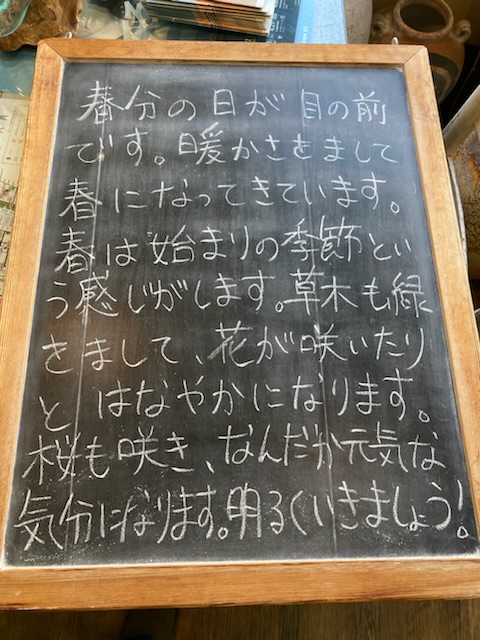 春分の日が目の前
です。暖かさをまして
春になってきています。
春は始まりの季節とい
う感じがします。草木も緑
をまして、花が咲いたり
と はなやかになります。
桜も咲き、なんだか元気な
気分になります。明るくいきましょう!